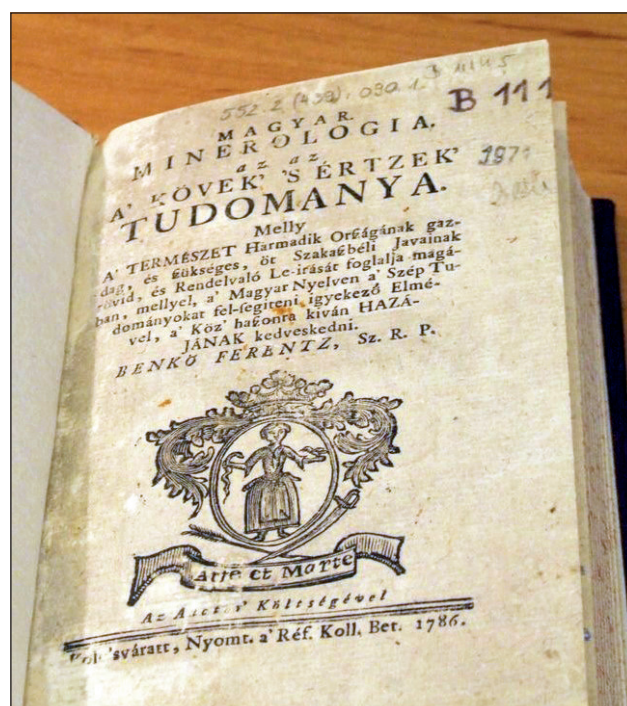 552.2 (439). 090.1.
B 111
1971
MAGYAR
MINEROLOGIA.
az az
A' KÖVEK' 'S ÉRTZEK'
TUDOMANYA.
Melly
A' TERMÉSZET Harmadik Orſágának gaz-
dag, és ßükséges, öt Szakaßbéli Javainak
rövid, és Rendelvaló Le-irását foglalja magá-
ban, mellyel, a' Magyar Nyelven a' Szép Tu-
dományokat fel-ſegiteni igyekező Elmé-
vel, a' Köz' haßonra kiván HAZÁ-
JÁNAK kedveskedni.
BENKÖ FERENTZ, Sz. R. P.
Arte et Marte
Az Auctor' Költségével
'sváratt, Nyomt. a' Réf. Koll. Bet. 1786.